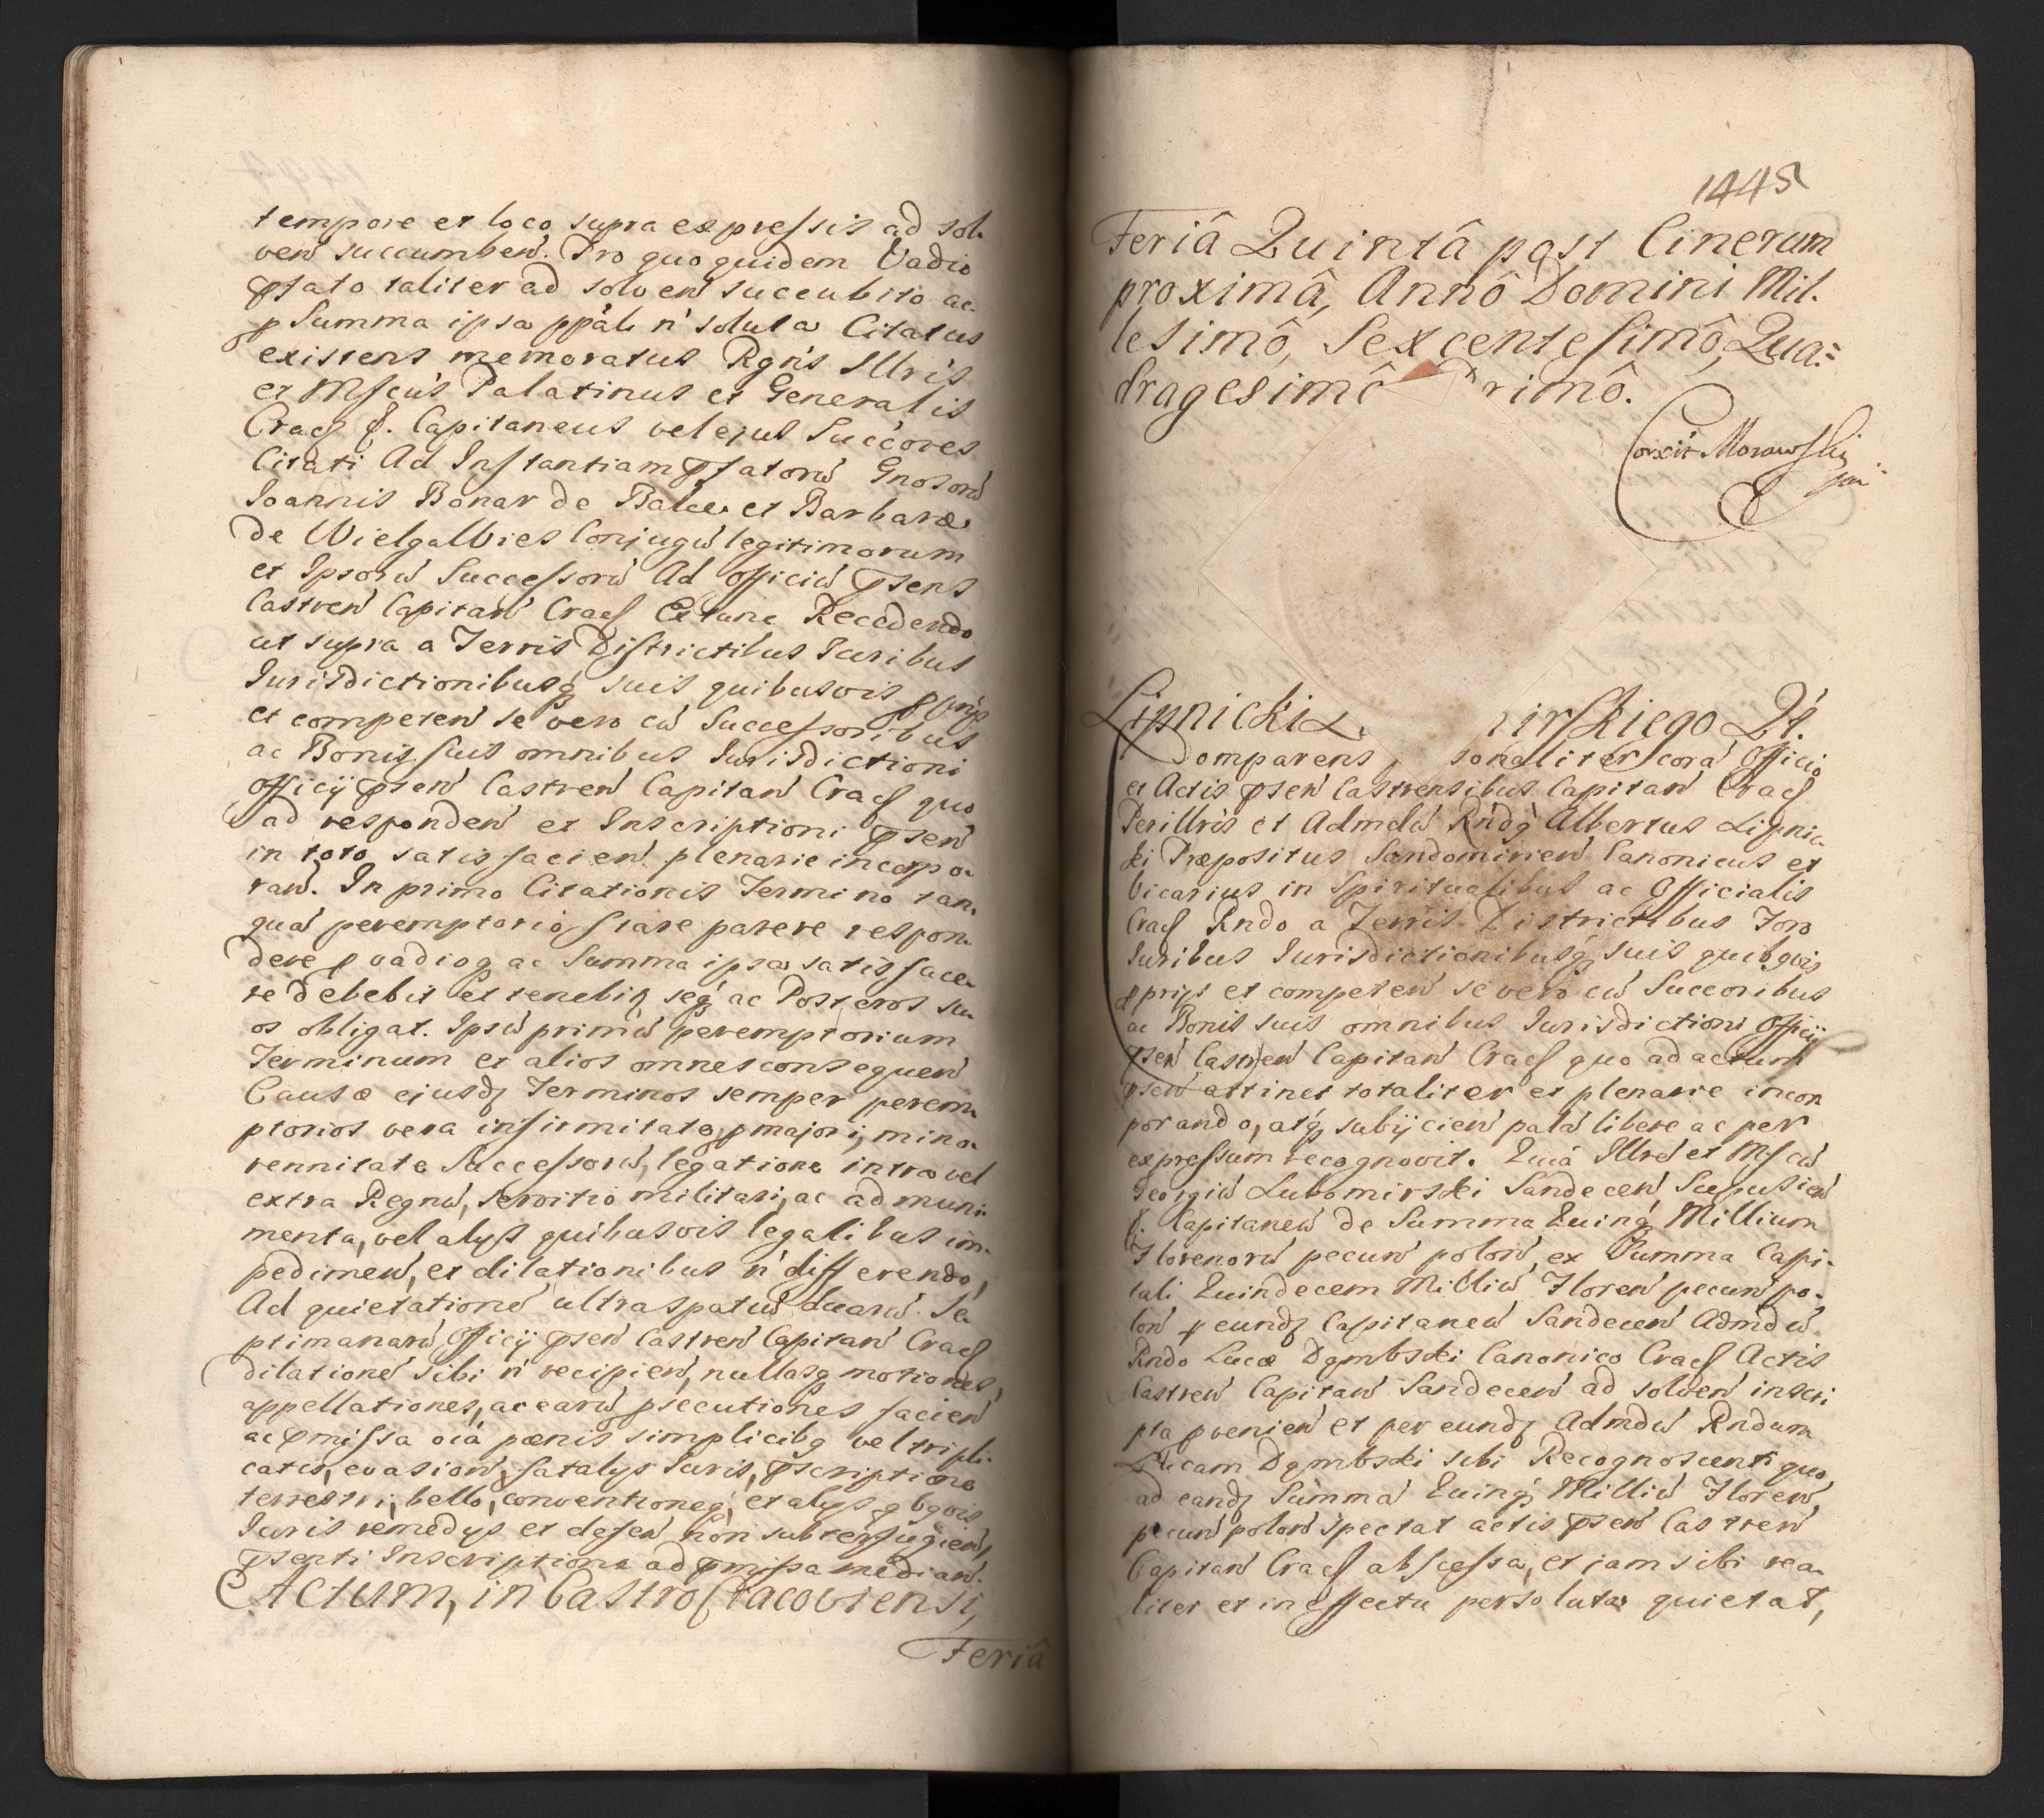 tempore et loco supra expressis ad sol-
ven̄ succumben̄. Pro quo quidem Vadio
p̄fato taliter ad solven̄ succubito ac
p Summa ipsa pp̄ali n̄ soluta Citatus
existens memoratus Rgn̄s Illris
et Mfcus Palatinus et Generalis
Cracˢ &. Capitaneus vel ejus Succores
Citati Ad Instantiam p̄fatorū Gnosorū
Ioannis Bonar de Balice et Barbaræ
de Wielgalwies Conjugū legitimorum
et Ipsorū Successorū Ad Officiū p̄sens
Castren̄ Capitan̄ Cracˢ Extunc Recedendo
ut supra a Terris Districtibus Iuribus
Iurisdictionibusq suis quibusvis pprijs
et competen̄ se vero cū Successoribus
ac Bonis suis omnibus Iurisdictioni
Officij p̄sen̄ Castren̄ Capitan̄ Cracˢ quo
ad responden̄ et Inscriptioni p̄sen̄
in toto satisfacien̄ plenarie incorpo-
ran̄. In primo Citationis Termino tan-
quā peremptorio stare parere respon-
dere p vadioq ac Summa ipsa satisface-
re debebit et tenebit seq ac Posteros su-
os obligat. Ipsū primū peremptorium
Terminum et alios omnes consequen̄
Causæ ejusdʒ Terminos semper perem-
ptorios vera infirmitate, p majori, mino-
rennitate Successorū, legatione intra vel
extra Regnū, servitio militari, ac ad muni-
menta, vel alijs quibusvis legalibus im-
pedimen̄, et dilationibus n̄ differendo,
Ad quietationē ultra spatiū duarū Se-
ptimanarū Officij p̄sen̄ Castren̄ Capitan̄ Cracˢ
dilationē sibi n̄ recipien̄, nullasq motiones,
appellationes, ac earū psecutiones facien̄
ac p̄missa oīa pænis simplicibq vel tripli-
catis, evasion̄, fatalijs Iuris, p̄scriptione
terrestri, bello, conventioneq, et alijs qbqvis
Iuris remedijs et defen̄ non subterfugien̄,
p̄senti Inscriptione ad p̄missa median̄.
Actum, in Castro Cracoviensi,
Feriâ
1445
Feriâ Quintâ post Cinerum
proximâ, Annô Domini Mil-
lesimô, Sexcentesimô, Qua-
dragesimô rimô.
Corxit Morawski
Lipnicki L. mirskiego Qt.
Comparens sonaliter corā Officio
et Actis p̄sen̄ Castrensibus Capitan̄ Cracˢ
Perillris et Admdū Rn̄dq Albertus Lipnic-
ki Præpositus Sandomirien̄ Canonicus et
Vicarius in Spiritualibus ac Officialis
Cracˢ Rndo a Terris Districtibus Foro
Iuribus Iurisdictionibusq suis quibqvis
pprijs et competen̄ se vero cū Succoribus
ac Bonis suis omnibus Iurisdictioni Officij
p̄sen̄ Castren̄ Capitan̄ Cracˢ quo ad actum
p̄sen̄ attinet totaliter et plenarie incor
porando, atq subijcien̄ palā libere ac per
expressum recognovit. Quiā Illrē et Mfcū
Georgiū Lubomirski Sandecen̄ Scepusien̄
&. Capitaneū de Summa Quinq Millium
Florenorū pecun̄ polon̄, ex Summa Capi-
tali Quindecem Milliū Floren̄ pecun̄ po-
lon̄ p eundʒ Capitaneū Sandecen̄ Admdū
Rndo Lucæ Dąmbski Canonico Cracˢ Actis
Castren̄ Capitan̄ Sandecen̄ ad solven̄ inscri
pta pvenien̄ et per eundʒ Admdū Rndum
Lucam Dąmbski sibi Recognoscenti quo
ad eandʒ Summā Quinq Milliū Floren̄,
pecun̄ polon̄ spectat actis p̄sen̄ Castren̄
Capitan̄ Cracˢ abscessa, et jam sibi rea-
liter et in effectu persoluta quietat,